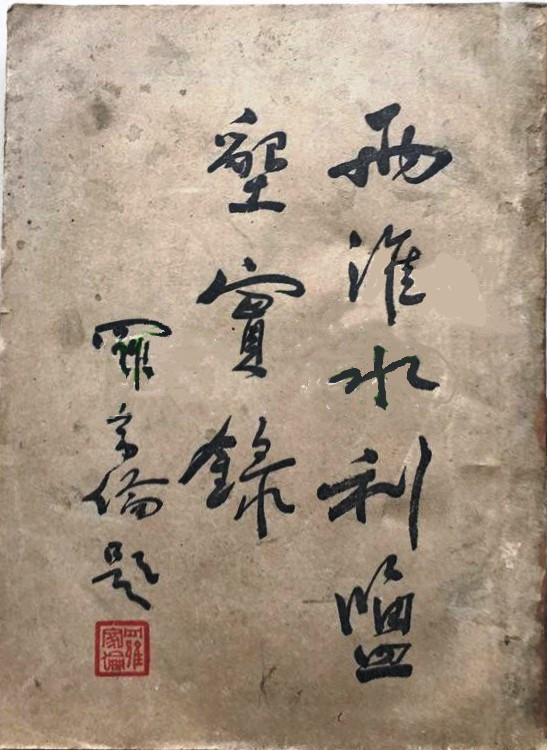 兩淮水利鹽
墾實錄
羅家倫題
羅家倫